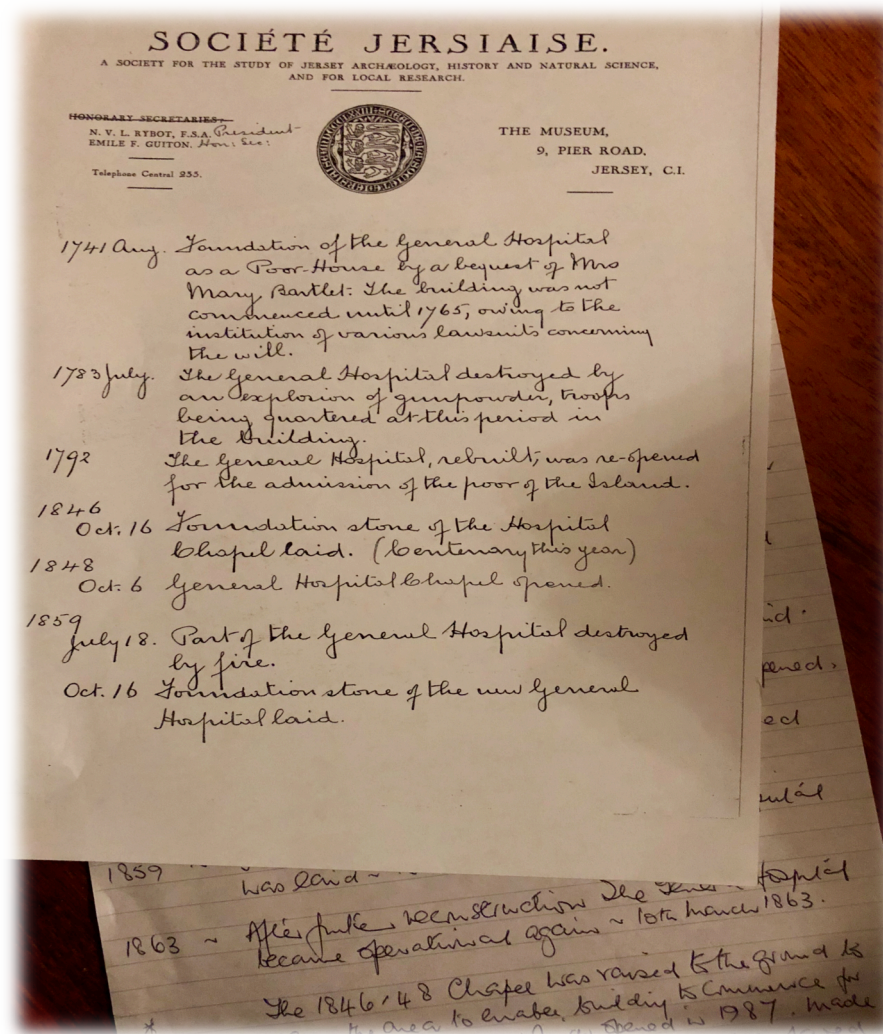 SOCIÉTÉ JERSIAISE.
A SOCIETY FOR THE STUDY OF JERSEY ARCHÆOLOGY, HISTORY AND NATURAL SCIENCE,
AND FOR LOCAL RESEARCH.
HONORARY SECRETARIES,
N. V. L. RYBOT, F.S.A. President
EMILE F. GUITON. Hon: Sec:
Telephone Central 255.
THE MUSEUM,
9, PIER ROAD,
JERSEY, C.I.
1741 Aug. Foundation of the General Hospital
as a Poor-House by a bequest of Mrs
Mary Bartlet. The building was not
commenced until 1765, owing to the
institution of various lawsuits concerning
the will.
1783 July. The General Hospital destroyed by
an explosion of gunpowder, troops
being quartered at this period in
the building.
1792 The General Hospital, rebuilt, was re-opened
for the admission of the poor of the Island.
1846
Oct. 16 Foundation stone of the Hospital
Chapel laid. (Centenary this year)
1848
Oct. 6 General Hospital Chapel opened.
1859
July 18. Part of the General Hospital destroyed
by fire.
Oct. 16 Foundation stone of the new General
Hospital laid.
pened.
ed
1859
was laid ~
1863 ~ After further reconstruction The Hospital
became operational again ~ 10th March 1863.
The 1846/48 Chapel was raised to the ground to
area to enable building to commence for
opened in 1987. made